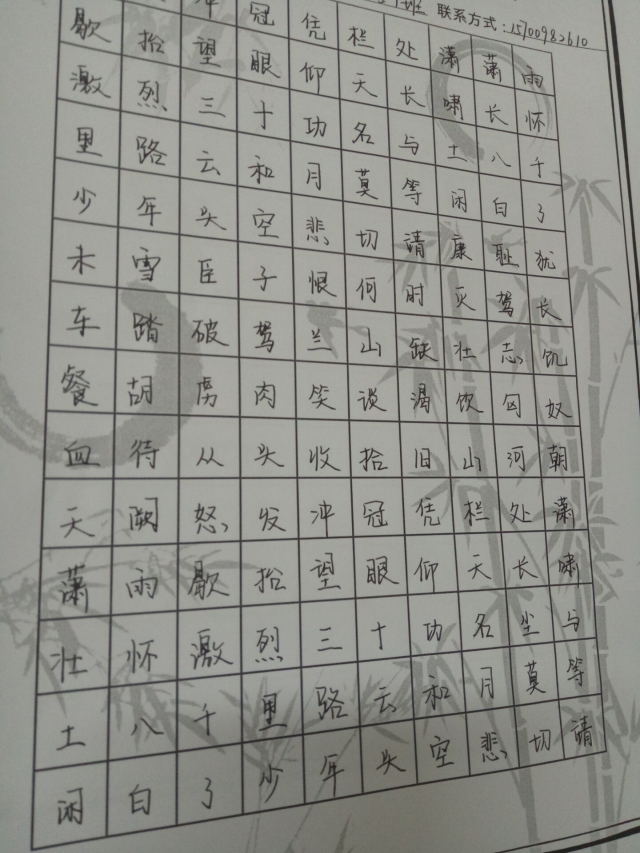 班 联系方式:15700982610
冲冠凭栏处潇潇雨
歇抬望眼仰天长啸长怀
激烈三十功名与土八千
里路云和月莫等闲白了
少年头空悲切请康耻犹
未雪臣子恨何时灭驾长
车踏破驾兰山缺壮志饥
餐胡虏肉笑谈渴饮匈奴
血待从头收拾旧山河朝
天阙怒发冲冠凭栏处潇
潇雨歇抬望眼仰天长啸
壮怀激烈三十功名尘与
土八千里路云和月莫等
闲白了少年头空悲切请